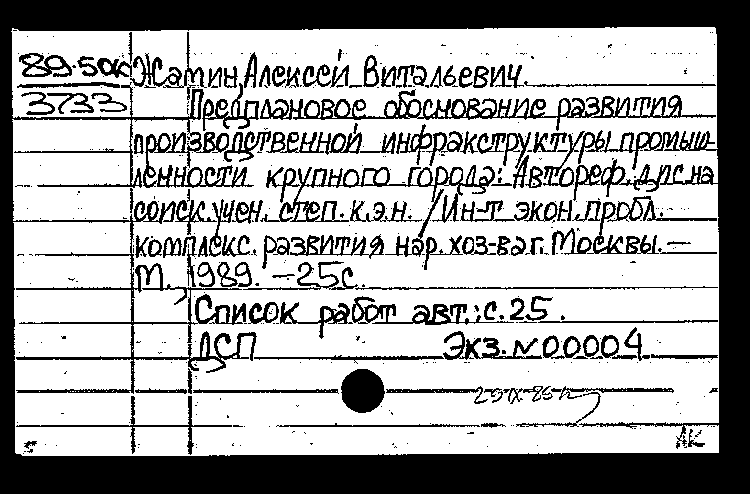 89-50к Жамин, Алексей Витальевич.
3733 Предплановое обоснование развития
производственной инфракструктуры промыш-
ленности крупного города: Автореф. дис. на
соиск. учен. степ. к.э.н. / Ин-т экон. пробл.
комплекс. развития нар. хоз-ва г. Москвы. —
М., 1989. — 25с.
Список работ авт.: с. 25.
ДСП Экз. № 00004
ЛК